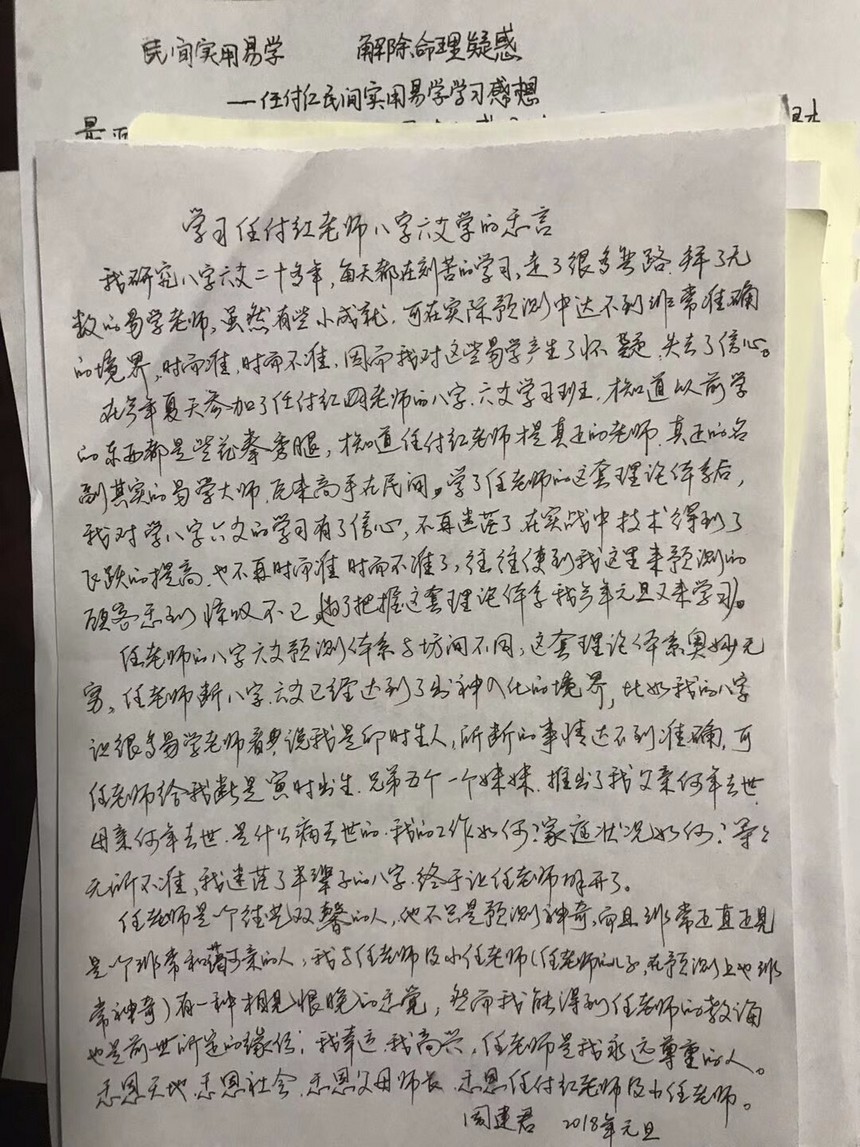 民间实用易学 解除命理疑惑
——任付红民间实用易学学习感想
学习任付红老师八字六爻学的感言
我研究八字六爻二十多年,每天都在刻苦的学习,走了很多弯路,拜了无
数的易学老师,虽然有些小成就,可在实际预测中达不到非常准确
的境界,时而准,时而不准,因而我对这些易学产生了怀疑,失去了信心。
在今年夏天参加了任付红老师的八字、六爻学习班,才知道以前学
的东西都是些花拳秀腿,才知道任付红老师才是真正的老师,真正的名
副其实的易学大师,原来高手在民间。学了任老师的这套理论体系后,
我对学八字六爻的学习有了信心,不再迷茫了,在实战中技术得到了
飞跃的提高,也不再时而准时而不准了,往往使到我这里来预测的
顾客感到惊叹不已,为了把握这套理论体系我今年元旦又来学习。
任老师的八字六爻预测体系与坊间不同,这套理论体系奥妙无
穷,任老师断八字、六爻已经达到了出神入化的境界,比如我的八字
让很多易学老师看都说我是卯时生人,所断的事情达不到准确,可
任老师给我断是寅时出生,兄弟五个一个妹妹,推出了我父亲何年去世,
母亲何年去世,是什么病去世的,我的工作如何?家庭状况如何?等等
无所不准,我迷茫了半辈子的八字,终于让任老师解开了。
任老师是个德艺双馨的人,他不只是预测神奇,而且非常正直正见
是个非常和蔼可亲的人,我与任老师及小任老师(任老师的儿子,在预测上也非
常神奇)有一种相见恨晚的感觉,然而我能得到任老师的教诲
也是前世所定的缘份,我幸运,我高兴,任老师是我永远尊重的人。
感恩天地,感恩社会,感恩父母师长,感恩任付红老师及小任老师。
周建君 2018年元旦